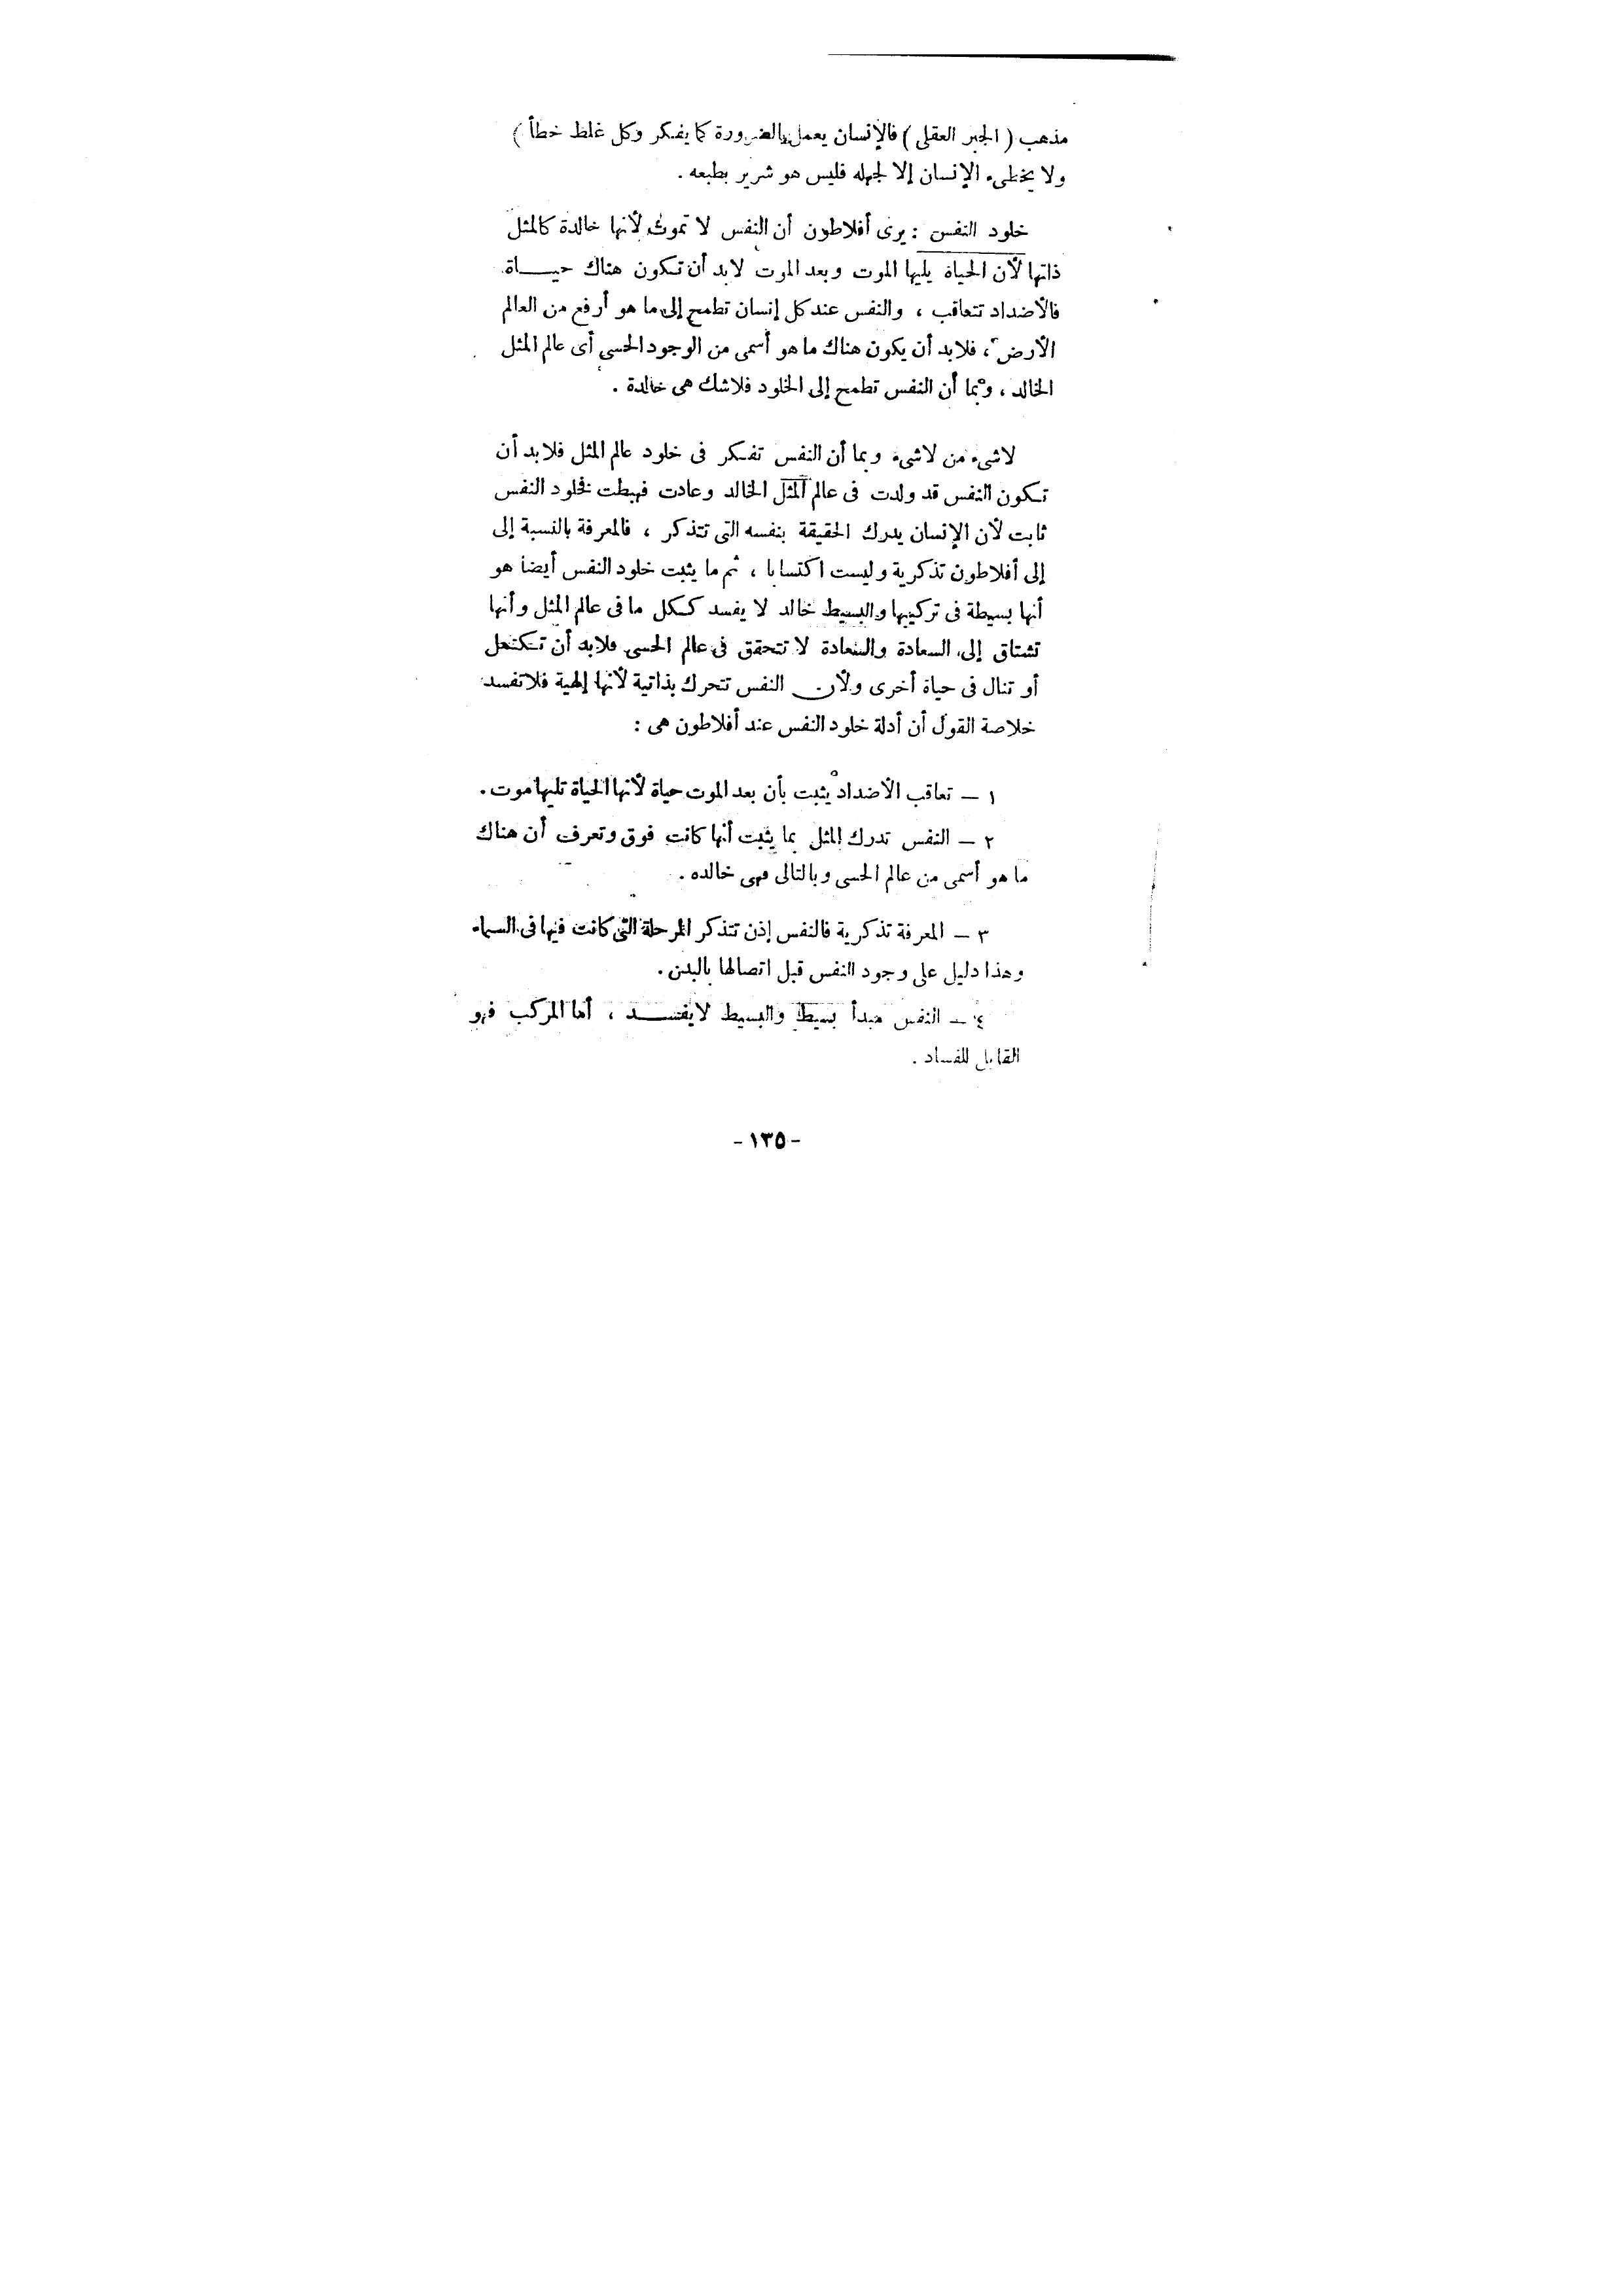 مذهب ( الجبر العقلى ) فالإنسان يعمل بالضرورة كما يفكر وكل غلط خطأ )
ولا يخطىء الإنسان إلا لجهله فليس هو شرير بطبعه .
خلود النفس : يرى أفلاطون أن النفس لا تموت لأنها خالدة كالمثل
ذاتها لأن الحياة يليها الموت وبعد الموت لابد أن تكون هناك حيـــاة
فالأضداد تتعاقب ، والنفس عند كل إنسان تطمح إلى ما هو أرفع من العالم
الأرض ، فلابد أن يكون هناك ما هو أسمى من الوجود الحسى أى عالم المثل
الخالد ، وبما أن النفس تطمح إلى الخلود فلاشك هى خالدة .
لاشىء من لاشىء وبما أن النفس تفكر فى خلود عالم المثل فلابد أن
تكون النفس قد ولدت فى عالم المثل الخالد وعادت فهبطت فخلود النفس
ثابت لأن الإنسان يدرك الحقيقة بنفسه التى تتذكر ، فالمعرفة بالنسبة إلى
إلى أفلاطون تذكرية وليست اكتسابا ، ثم ما يثبت خلود النفس أيضا هو
أنها بسيطة فى تركيبها والبسيط خالد لا يفسد ككل ما فى عالم المثل وأنها
تشتاق إلى السعادة والسعادة لا تتحقق فى عالم الحسى فلابد أن تكتمل
أو تنال فى حياة أخرى ولأن النفس تتحرك بذاتية لأنها إلهية فلا تفسد
خلاصة القول أن أدلة خلود النفس عند أفلاطون هى :
١ – تعاقب الأضداد يثبت بأن بعد الموت حياة لأنها الحياة تليها موت .
٢ – النفس تدرك المثل بما يثبت أنها كانت فوق وتعرف أن هناك
ما هو أسمى من عالم الحسى وبالتالى فهى خالده .
٣ – المعرفة تذكرية فالنفس إذن تتذكر المرحلة التى كانت فيها فى السماء
وهذا دليل على وجود النفس قبل اتصالها بالبدن .
٤ – النفس مبدأ بسيط والبسيط لايفســـد ، أما المركب فهو
القابل للفساد .
- ١٣٥ -